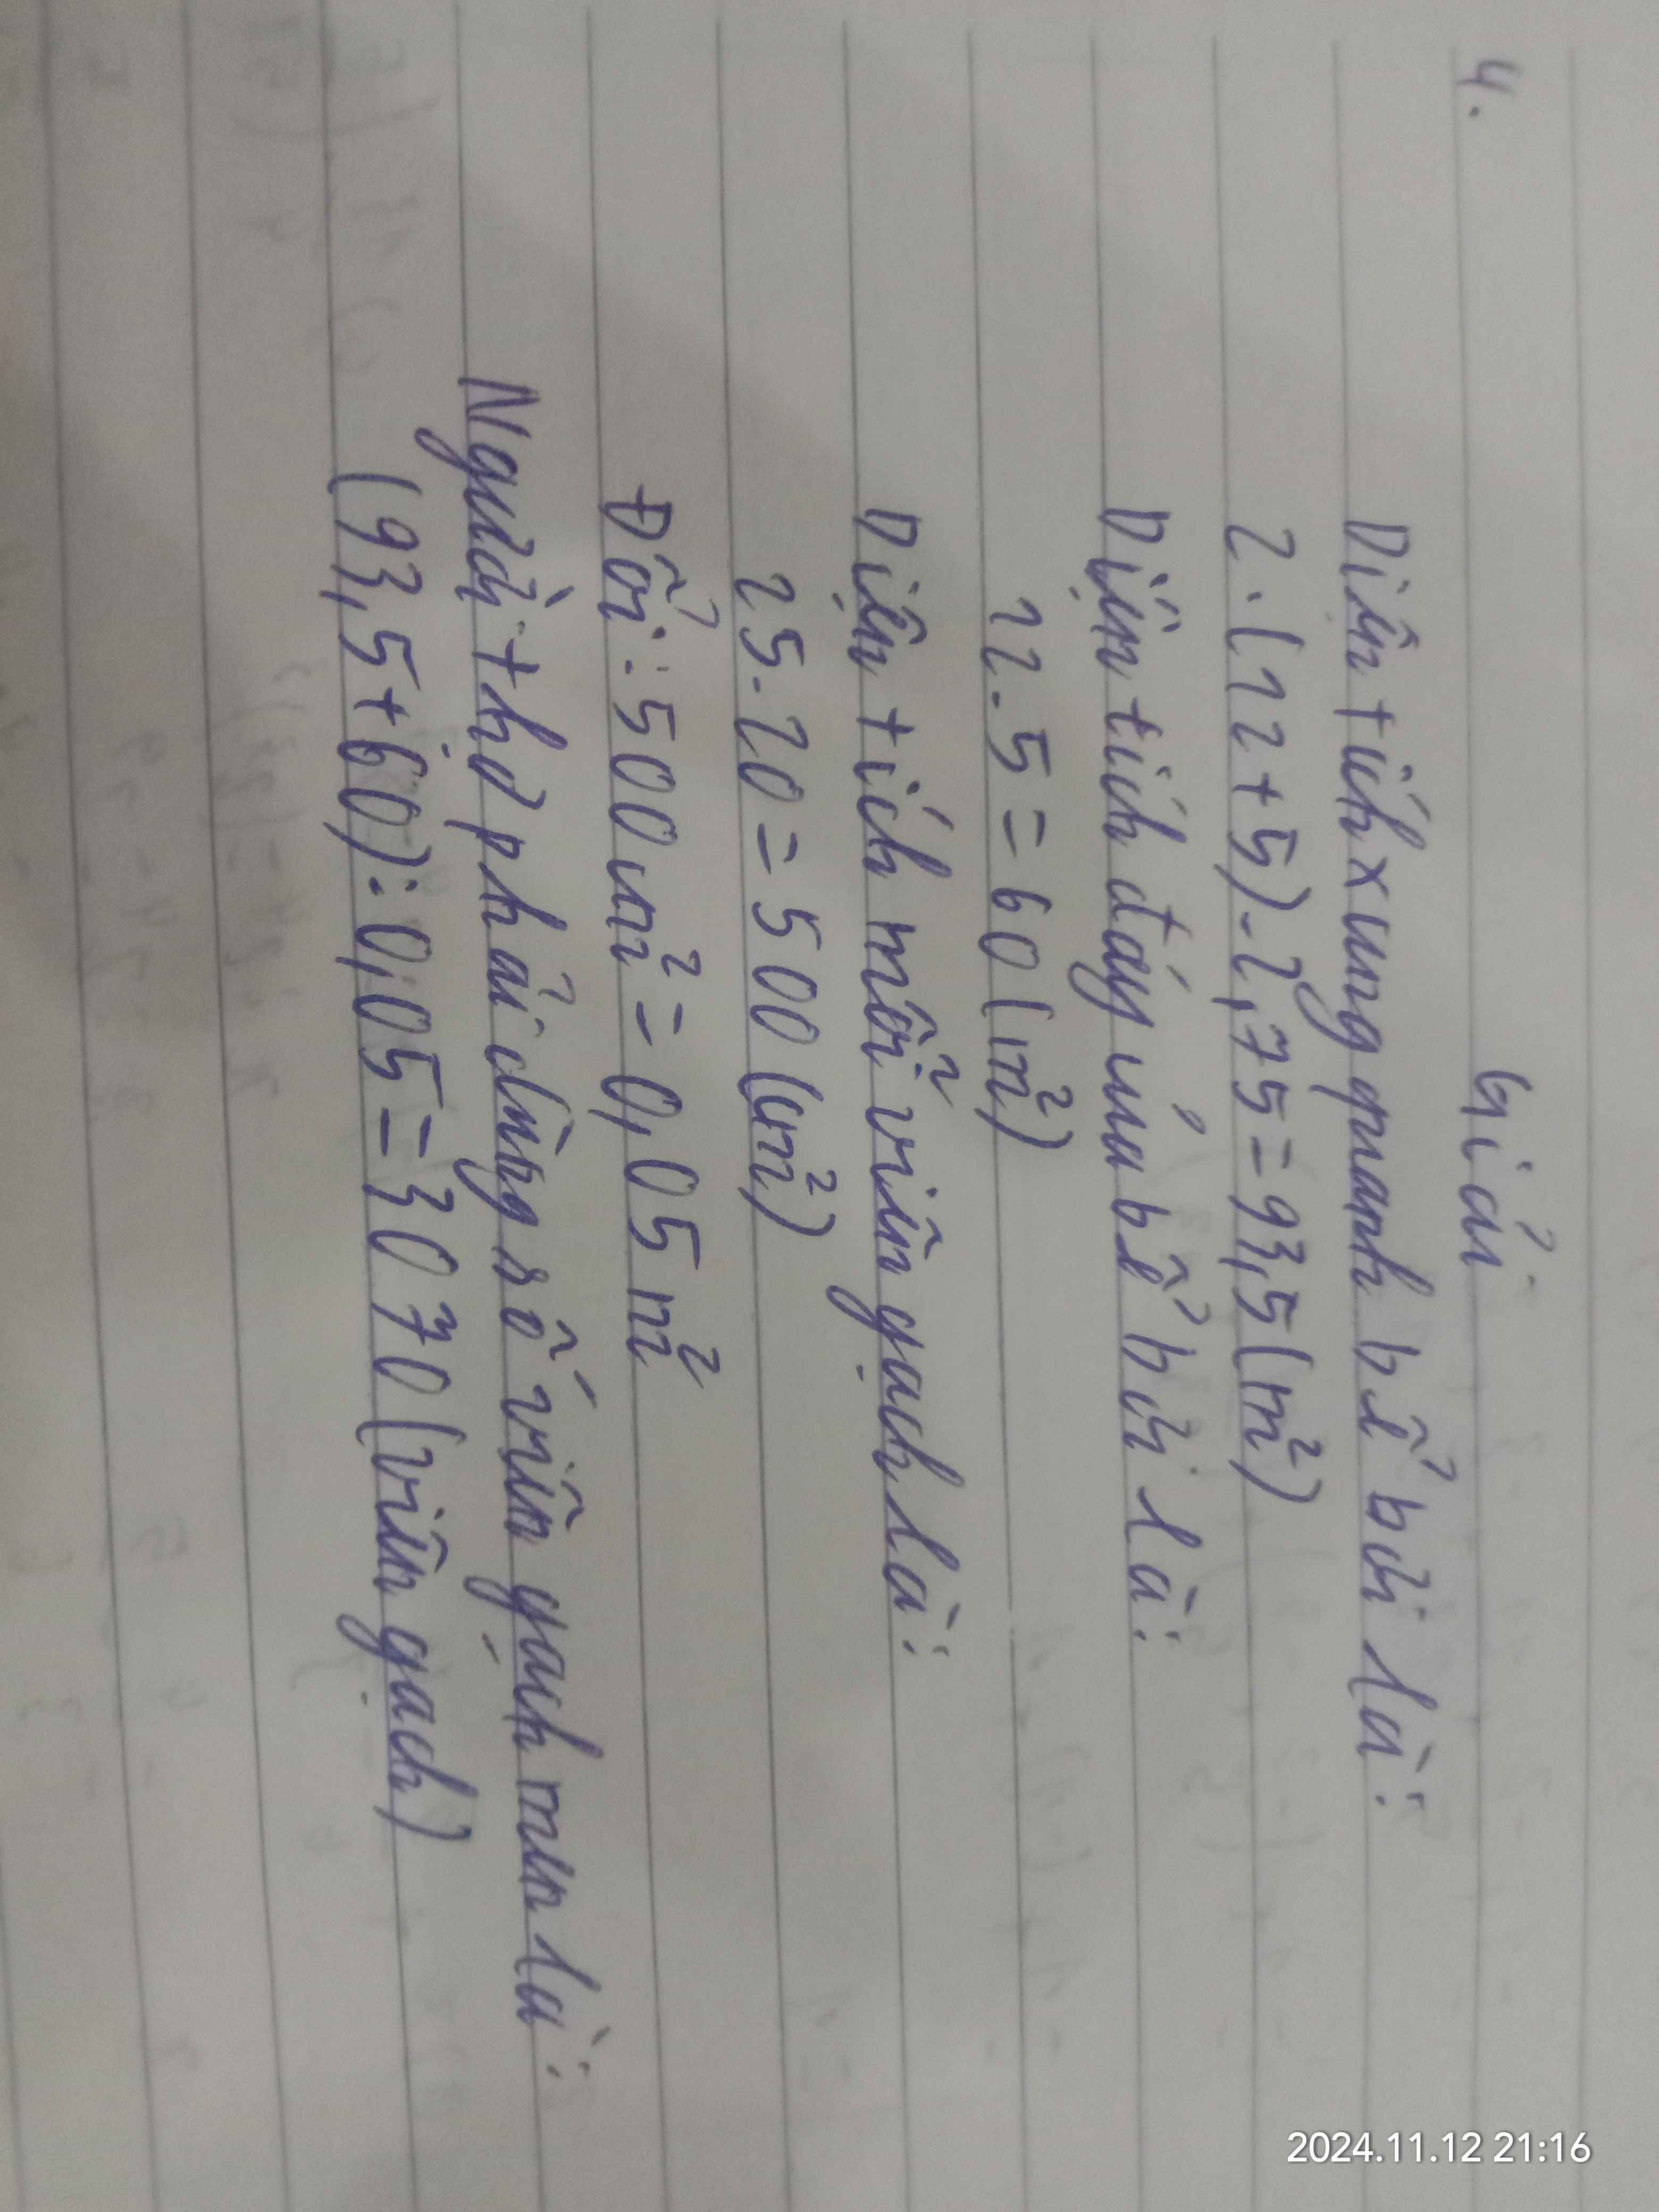 4.
Giải
Diện tích xung quanh bể bơi là:
2.(12+5).2,75=93,5(m²)
Diện tích đáy của bể bơi là:
12.5=60(m²)
Diện tích mỗi viên gạch là:
25.20=500(cm²)
Đổi:500cm²=0,05m²
Người thợ phải dùng số viên gạch men là:
(93,5+60):0,05=3070(viên gạch)
2024.11.12 21:16